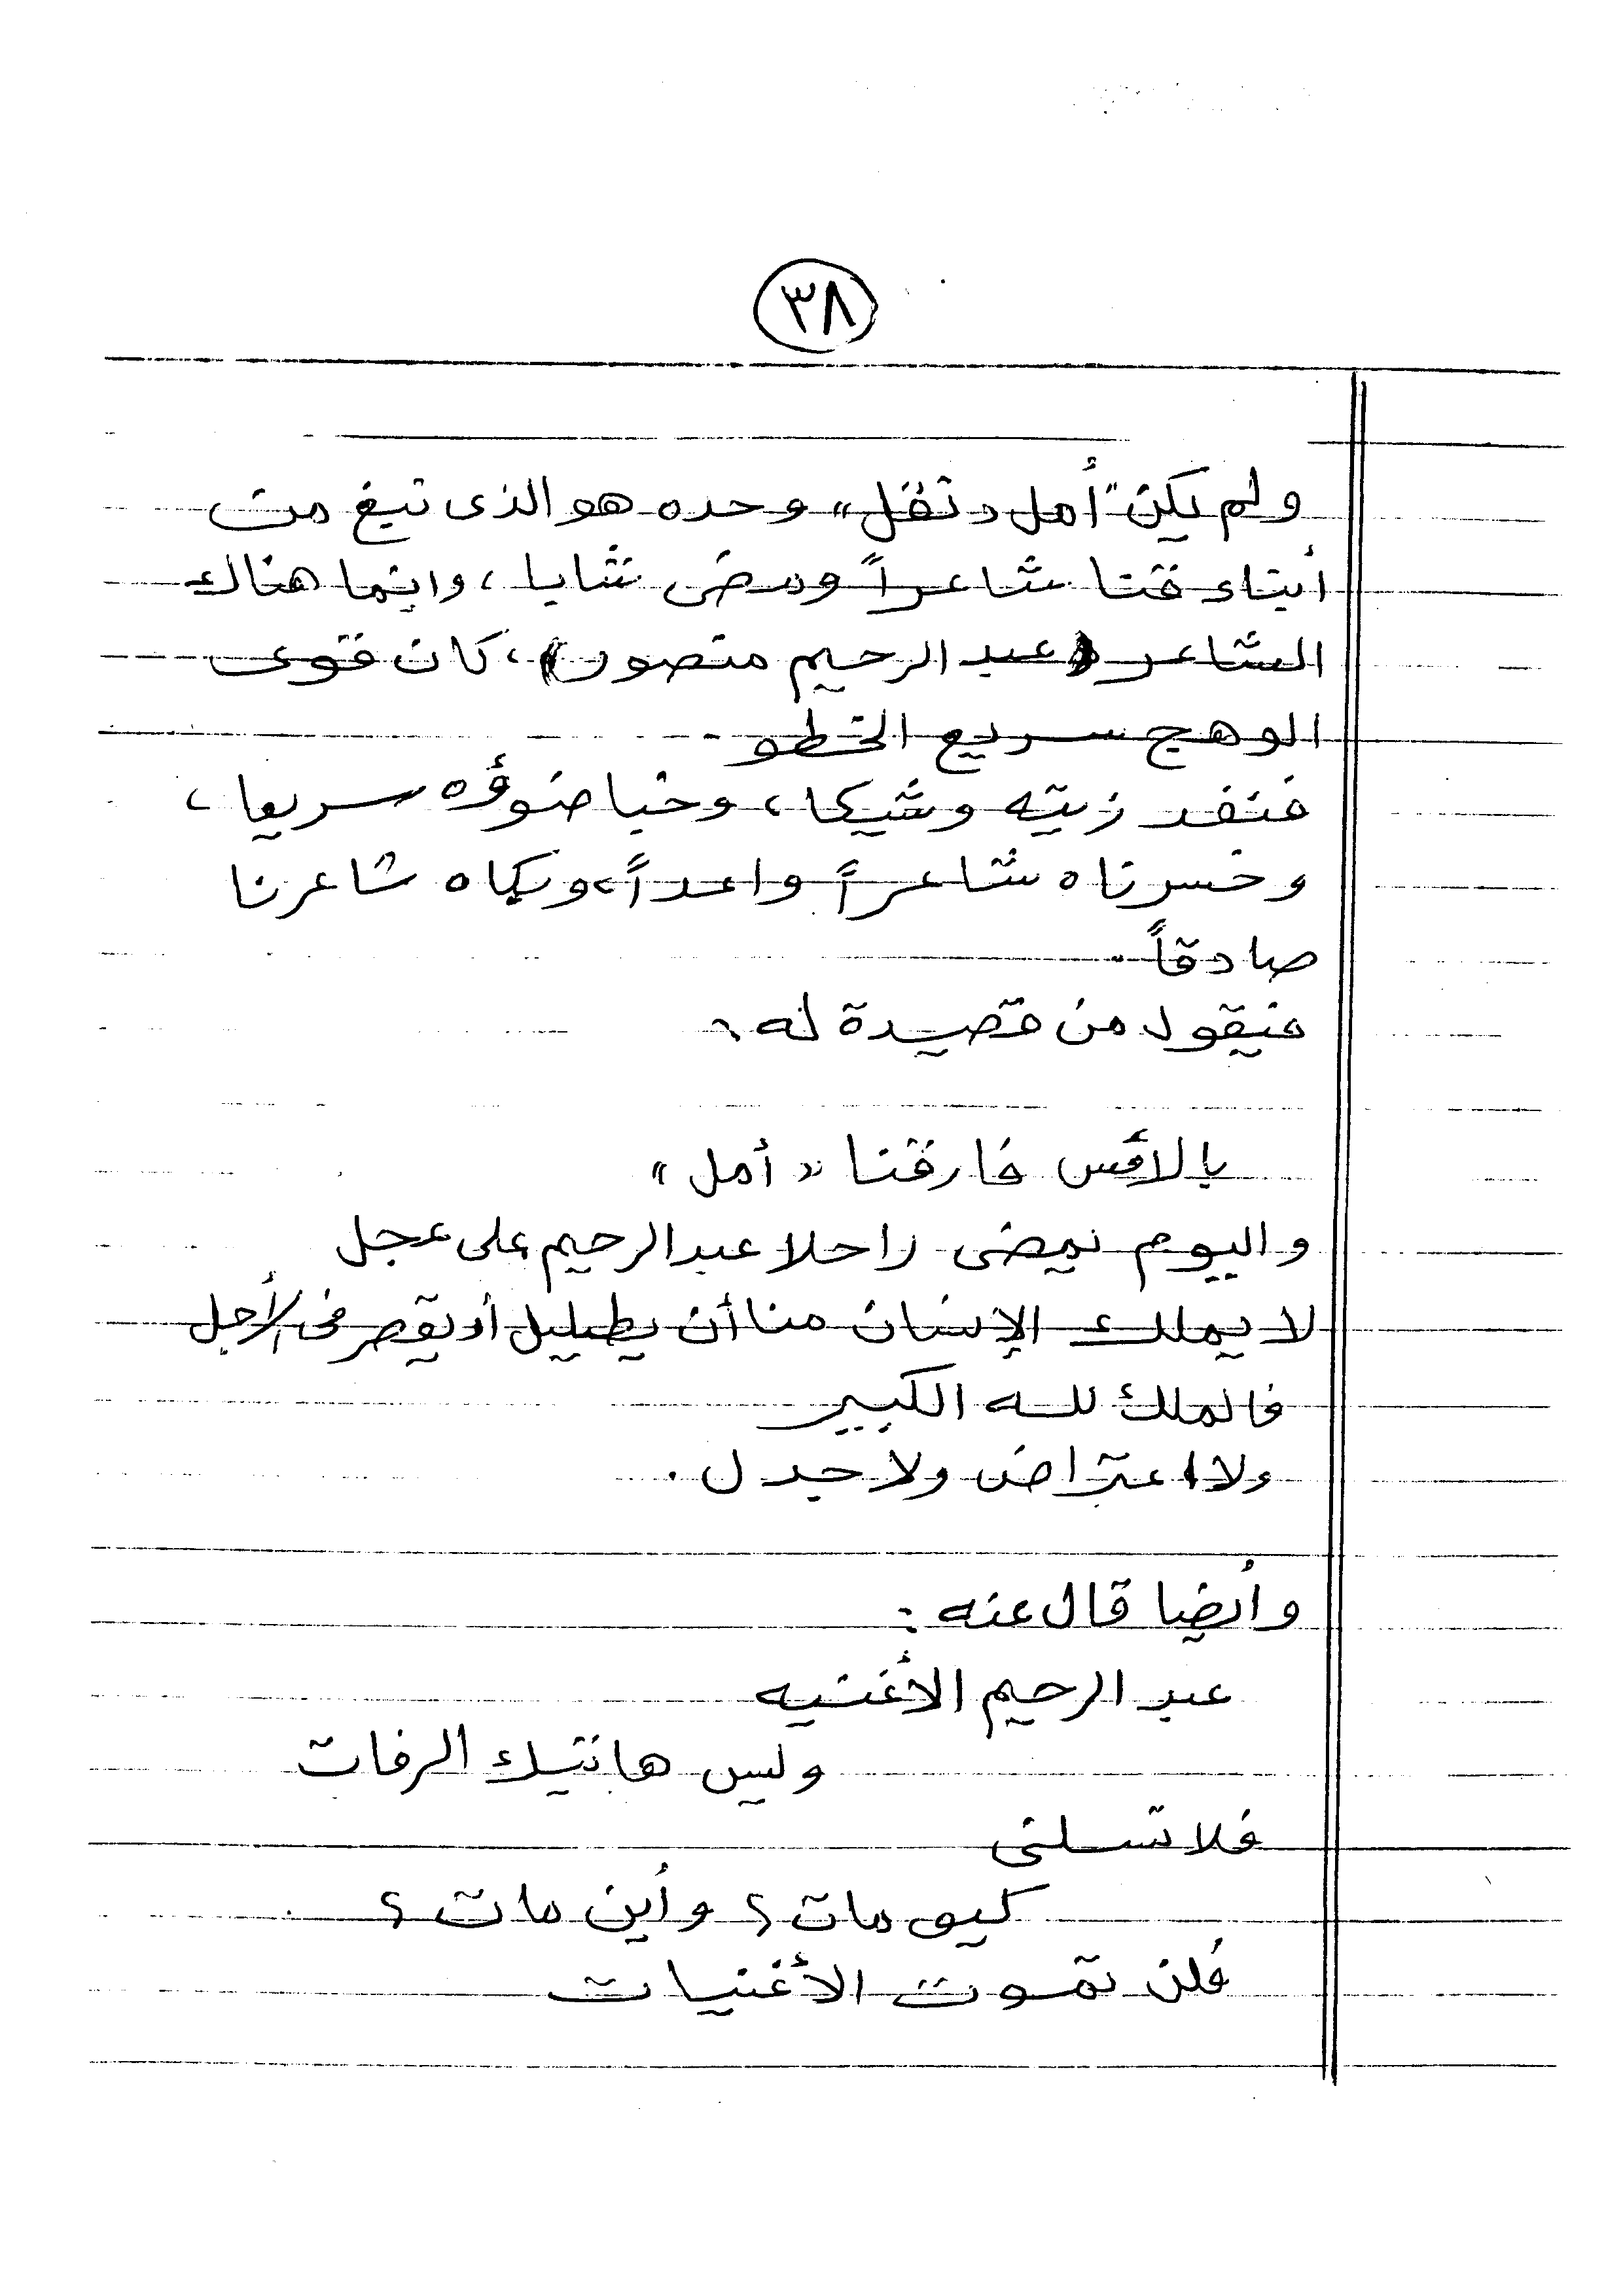 ٣٨
ولم يكن "أمل دنقل" وحده هو الذى نبغ من
أبناء قنا شاعراً ومضى شابا، وإنما هناك
الشاعر (عبد الرحيم منصور)، كان قوى
الوهج سريع الخطو
فنفد زيته وشيكا، وخبا ضوؤه سريعا،
وخسرناه شاعراً واعداً، وبكاه شاعرنا
صادقاً.
فيقول من قصيدة له:
بالأمس فارقنا "أمل"
واليوم يمضى راحلا عبد الرحيم على عجل
لا يملك الإنسان منا أن يطيل أو يقصر فى الأجل
فالملك لله الكبير
ولا اعتراض ولا جدل.
وأيضا قال عنه:
عبد الرحيم الأغنيه
وليس هاتيك الرفات
فلا تسلنى
كيف مات؟ وأين مات؟
فلن تموت الأغنيات